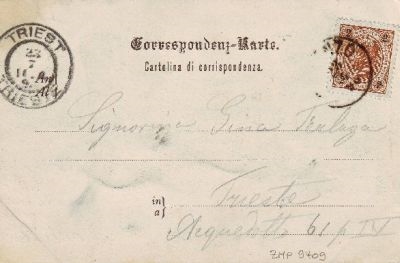 TRIEST
23
7
11
TRIEST
Correspondenz-Karte.
Cartolina di corrispondenza.
An
Al
Signorina Gisa
in
a
Trieste
Acquedotto 61 p IV
ZMP 9709